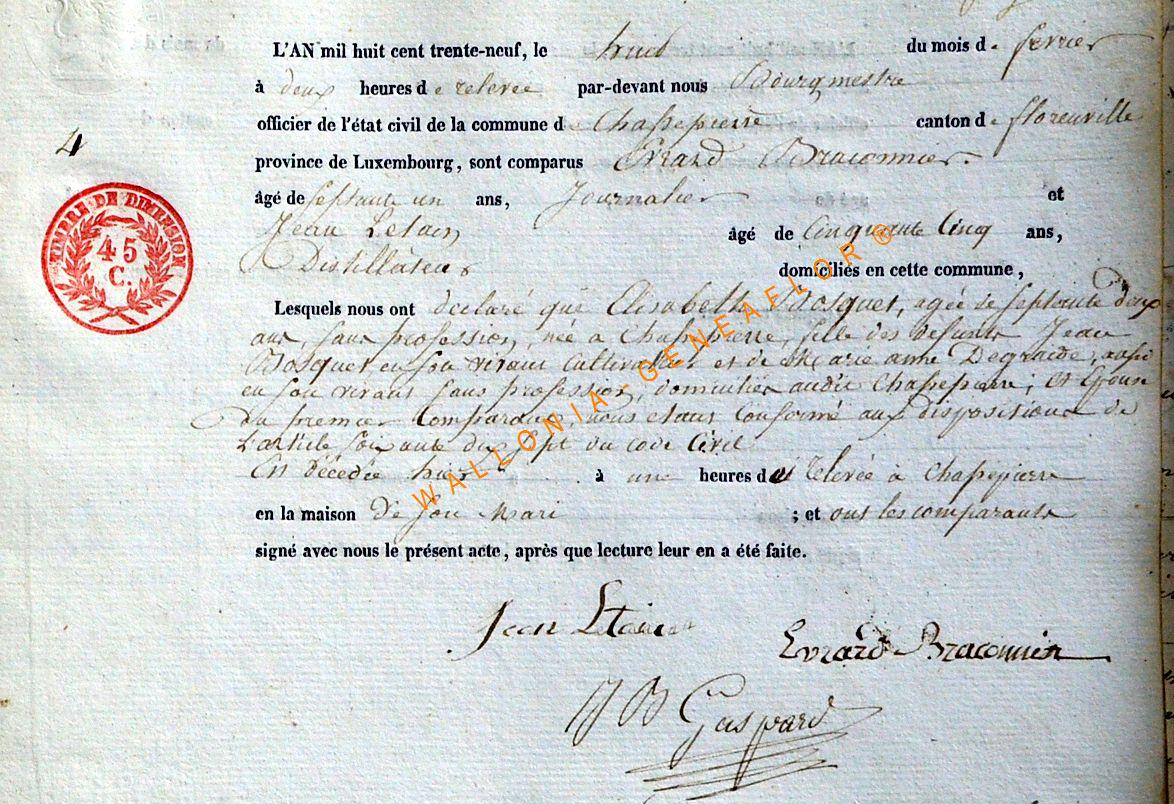 L'AN mil huit cent trente-neuf, le huit du mois de fevrier
à deux heures de relevée par-devant nous Bourgmestre
officier de l'état civil de la commune de Chassepierre canton de florenville
4
province de Luxembourg, sont comparus Evrard Braconnier.
âgé de septante un ans, Journalier et
Jean Letain âgé de Cinquante Cinq ans,
Distillateur domiciliés en cette commune,
TIMBRE DE DIMENSION
45
C.
Lesquels nous ont declaré que Elisabeth Bosquet, agée de septante deux
ans, sans profession, née a Chassepierre, fille des defunts Jean
Bosquet en son vivant cultivateur et de Marie anne Degraide, aussi
en son vivant sans profession, domiciliés audit Chassepierre; et Epouse
du premier Comparant nous etant Conformé aux dispositions de
L'article soixante dix sept du code Civil
Est décédée hier à une heures de relevée à Chassepierre
en la maison de son Mari ; et ont les comparants
signé avec nous le présent acte, après que lecture leur en a été faite.
Jean Letain
Evrard Braconnier
J B Gaspard
WALLONIA-GENEAFLOR ®